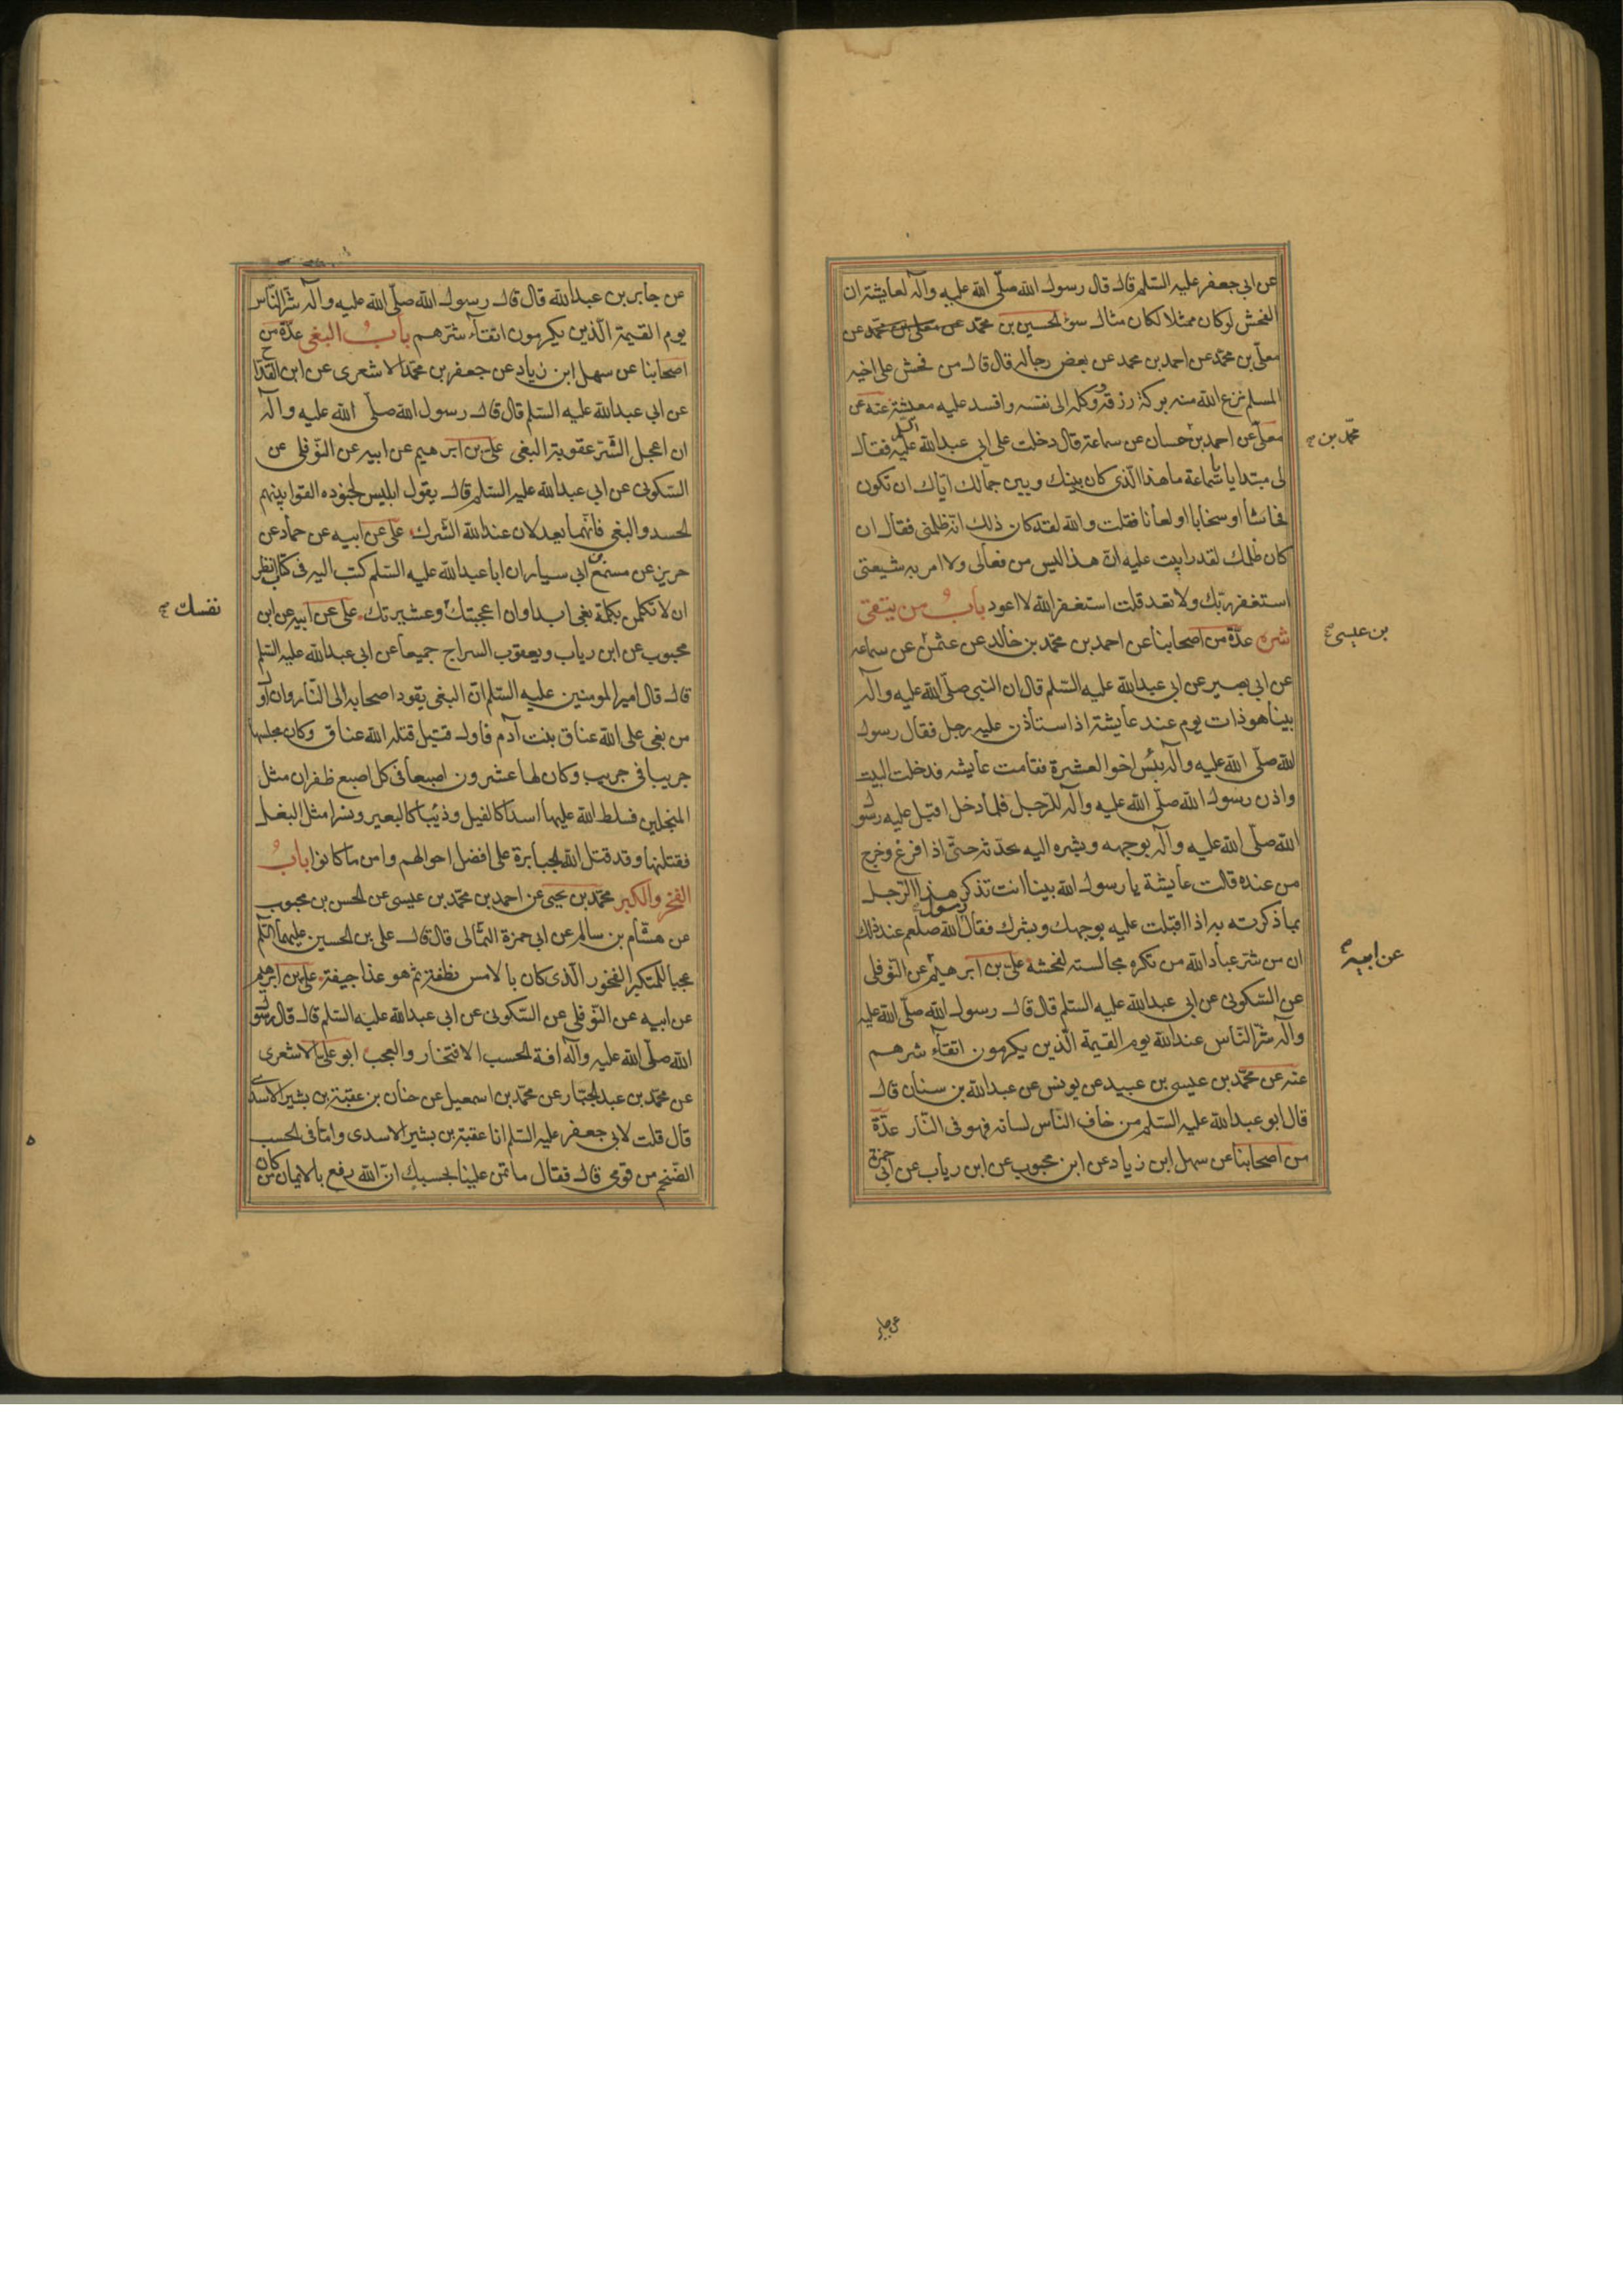 عن ابي جعفر عليه السّلم قال قال رسول الله صلّى الله عليه وآله لعايشة ان
الفحش لو كان ممثلا لكان مثال سوء الحسين بن محمّد عن معلى بن محمّد عن
معلّى بن محمّد عن احمد بن محمد عن بعض رجاله قال قال من فحش على اخيه
المسلم نزع الله منه بركة رزقه ووكله الى نفسه وافسد عليه معيشته عنه عن
معلّى عن احمد بن حسان عن سماعة قال دخلت على ابي عبد الله عليه السلم فقال
محمّد بن
لي مبتديا يا سماعة ما هذا الّذي كان بينك وبين جمّالك ايّاك ان تكون
فحاشا او سخابا او لعانا فقلت والله لقد كان ذلك انّه ظلمني فقال ان
كان ظلمك لقد رابيت عليه انّ هذا ليس من فعالي ولا امر به شيعتي
استغفر ربّك ولا تعد قلت استغفر الله لا اعود باب من يتقى
شره عدّة من اصحابنا عن احمد بن محمّد بن خالد عن عثمن عن سماعه
بن عيسى
عن ابي بصير عن ابي عبد الله عليه السّلم قال ان النّبي صلّى الله عليه وآله
بينا هو ذات يوم عند عايشة اذا استأذن عليه رجل فقال رسول
الله صلّى الله عليه وآله بئس اخو العشيرة فقامت عايشه فدخلت البيت
واذن رسول الله صلّى الله عليه وآله للرّجل فلما دخل اقبل عليه رسول
الله صلّى الله عليه وآله بوجهه وبشره اليه يحدّثه حتّى اذا فرغ وخرج
من عنده قالت عايشة يا رسول الله بينا انت تذكر هذا الرّجل
بما ذكرته به اذا اقبلت عليه بوجهك وبشرك فقال رسول الله صلعم عند ذلك
ان من شرّ عباد الله من تكره مجالسته لفحشه علي بن ابرهيم عن النّوفلي
عن ابيه
عن السّكوني عن ابي عبد الله عليه السّلم قال قال رسول الله صلّى الله عليه
وآله شرّ النّاس عند الله يوم القيمة الّذين يكرمون اتقاء شرهم
عنه عن محمّد بن عيسى بن عبيد عن يونس عن عبد الله بن سنان قال
قال ابو عبد الله عليه السّلم من خاف النّاس لسانه فهو في النّار عدّة
من اصحابنا عن سهل ابن زياد عن ابن محبوب عن ابن رياب عن ابي حمزة
عن جابر
عن جابر بن عبد الله قال قال رسول الله صلّى الله عليه وآله شرّ النّاس
يوم القيمة الّذين يكرمون اتقاء شرّهم باب البغي عدّة من
اصحابنا عن سهل ابن زياد عن جعفر بن محمّد الاشعري عن ابن القدّاح
عن ابي عبد الله عليه السّلم قال قال رسول الله صلّى الله عليه وآله
ان اعجل الشّرّ عقوبة البغي علي بن ابرهيم عن ابيه عن النّوفلي عن
السّكوني عن ابي عبد الله عليه السّلم قال يقول ابليس لجنوده القوا بينهم
الحسد والبغي فانّهما يعدلان عند الله الشّرك علي عن ابيه عن حماد عن
حريز عن مسمع ابي سيار ان ابا عبد الله عليه السّلم كتب اليه في كتاب انظر
ان لا تكلمن بكلمة بغي ابدا وان اعجبتك وعشيرتك علي عن ابيه عن ابن
نفسك
محبوب عن ابن رياب ويعقوب السراج جميعا عن ابي عبد الله عليه السّلم
قال قال امير المومنين عليه السّلم انّ البغي يقود اصحابه الى النّار وان اول
من بغى على الله عناق بنت آدم فاول قتيل قتله الله عناق وكان مجلسها
جريبا في جريب وكان لها عشرون اصبعا في كل اصبع ظفران مثل
المنجلين فسلط الله عليها اسدا كالفيل وذئبا كالبعير ونسرا مثل البغل
فقتلنها وقد قتل الله الجبابرة على افضل احوالهم وامن ما كانوا باب
الفخر والكبر محمّد بن يحيى عن احمد بن محمّد بن عيسى عن الحسن بن محبوب
عن هشام بن سالم عن ابي حمزة الثمالي قال قال علي بن الحسين عليهما السّلم
عجبا للمتكبر الفخور الّذي كان بالامس نطفة ثم هو غدا جيفة علي بن ابرهيم
عن ابيه عن النّوفلي عن السّكوني عن ابي عبد الله عليه السّلم قال قال رسول
الله صلّى الله عليه وآله افة الحسب الافتخار والعجب ابو علي الاشعري
عن محمّد بن عبد الجبّار عن محمّد بن اسمعيل عن حنان بن عقبة بن بشير الاسدي
قال قلت لابي جعفر عليه السّلم انا عقبة بن بشير الاسدي وانا في الحسب
الضّخم من قومي قال فقال ما تمن علينا بحسبك انّ الله رفع بالايمان من كان